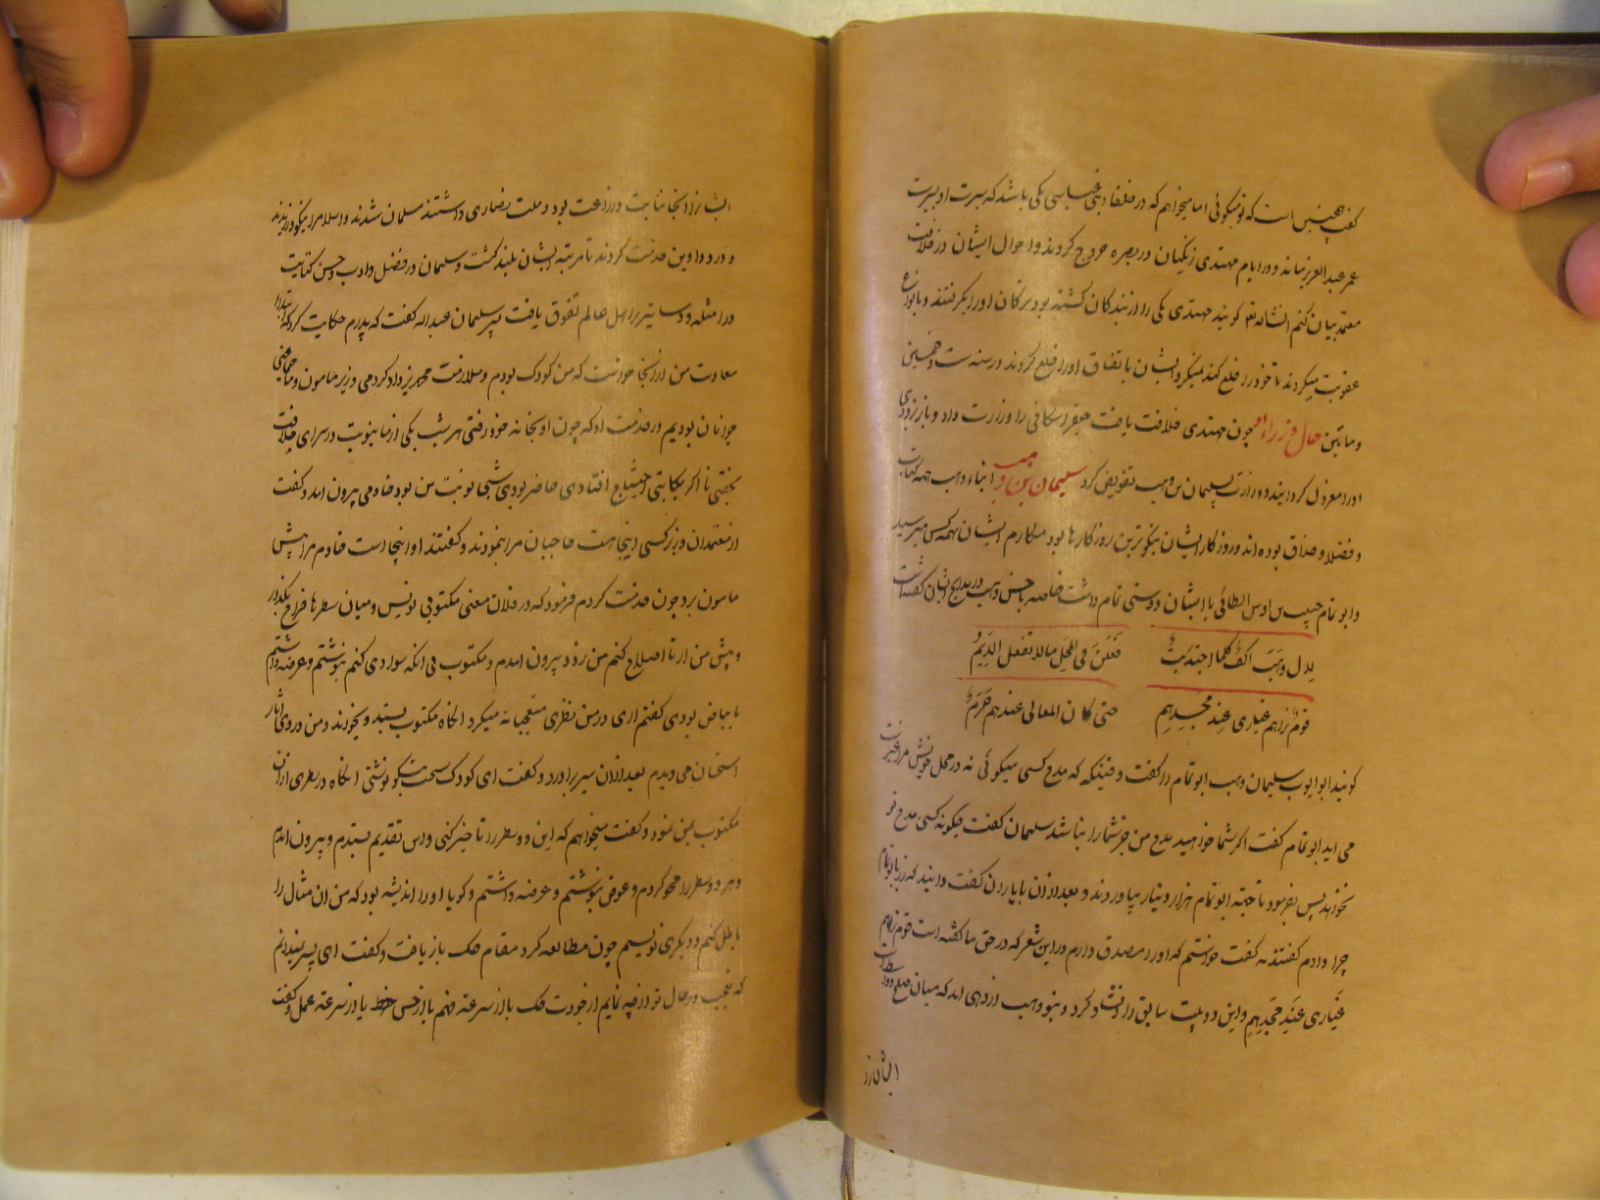 گفت همچنین است که تو میگوئی اما میخواهم که در خلفاء بنی عباس یکی باشد که سیرت او بسیرت
عمر عبدالعزیز ماند و در ایام مهتدی زنگیان در بصره خروج کردند و احوال ایشان در خلافت
معتمد بیان کنم انشاءالله تعالی گویند مهتدی یکی را از بندگان کشته بود ترکان او را بگرفتند و بانواع
عقوبت میکردند تا خود را خلع کند نمیکرد ایشان باتفاق او را خلع کردند در سنه ست و خمسین
و مایتین حال وزراء او چون مهتدی خلافت یافت جعفر اسکافی را وزارت داد و باز بزودی
او را معزول گردانید و وزارت بسلیمان بن وهب تفویض کرد سلیمان بن وهب ابناء وهب همه کتاب
و فضلا و حذاق بوده اند و روزگار ایشان نیکوترین روزگارها بود مکارم ایشان بهمه کس میرسید
و ابو تمام حبیب بن اوس الطائی با ایشان دوستی تمام داشت خاصه بحسن وهب در مدایح ایشان گفته است
لآل وهب اکف کلما اجتدیت فعلن فی المحل مالا تفعل الدیم
قوم تراهم غیاری عند مجدهم حتی کان المعالی عندهم حرم
گویند ابو ایوب سلیمان وهب ابو تمام را گفت وقتیکه که مدح کسی میگوئی نه در محل خویش مرا غیرت
می اید ابو تمام گفت اگر شما خواهید مدح من جز شما را نباشد سلیمان گفت چگونه کسی مدح تو
نخواهد پس بفرمود تا جهة ابو تمام هزار دینار بیاوردند و بعد از آن با یاران گفت دانید که زر بابو تمام
چرا دادم گفتند نه گفت خواستم که او را مصدق دارم در این شعر که در حق ما گفته است قوم تراهم
غیاری عند مجدهم و این دو بیت سابق را انشاد کرد و بنو وهب از دهی اند که میان واسط است
ایشان از
ایشان از آنجا بنابت و زراعت بود و ملت نصاری داشتند مسلمان شدند و اسلام را نیکو ورزیدند
و در دواوین خدمت کردند تا مرتبه ایشان بلند گشت و سلیمان در فضل و ادب و حسن کتابت
در امثله و دساتیر بر اهل عالم تفوق یافت پسر سلیمان عبدالله گفت که پدرم حکایت کرد که ابتداء
سعادت من از آنجا خواست که من کودک بودم و ملازمت محمد یزداد کردمی وزیر مامون و ما جماعتی
جوانان بودیم در خدمت او که چون او بخانه خود رفتی هر شب یکی از ما بنوبت در سرای خلافت
بخفتی تا اگر بکتابتی احتیاج افتادی حاضر بودی شبی نوبت من بود خادمی بیرون امد و گفت
از معتمدان وزیر کسی اینجا هست حاجبان مرا بنمودند و گفتند او اینجا است خادم مرا پیش
مامون برد چون خدمت کردم فرمود که در فلان معنی مکتوبی نویس و میان سطرها فراخ بگذار
و پیش من ار تا اصلاح کنم من زود بیرون امدم و مکتوب بی انکه سوادی کنم بنوشتم و عرضه داشتم
استحسان می دیدم بعد از ان سر براورد و گفت ای کودک سخت نیکو نوشتی انگاه در سطری از ان
مکتوب بمن نمود و گفت میخواهم که این دو سطر را تاخیر کنی و این تقدیم بستدم و بیرون امدم
و هر دو سطر را محو کردم و عوض بنوشتم و عرضه داشتم و گویا او را اندیشه بود که من ان مثال را
باطل کنم و دیگری نویسم چون مطالعه کرد مقام حک باز یافت و گفت ای پسر نمیدانم
که تعجب در حال تو از چه نمایم از جودت حک یا از سرعت فهم یا از حسن خط یا از سرعت عمل و گفت